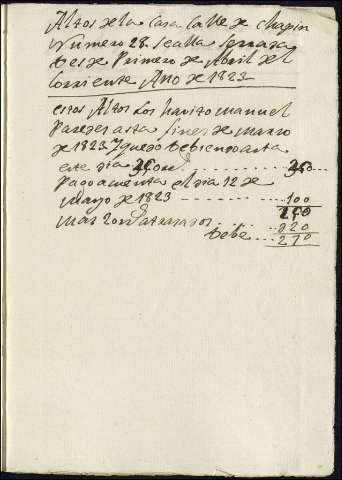 Altos de la Casa Calle de Chapin
Numero 28. Sealla Serrada
desde Primero de Abril del
Corriente Año de 1823
estos Altos los havito Manuel
Paredes asta fines de Marzo
de 1823 y quedo debiendo asta
este dia
Pago a cuenta el dia 12 de
Mayo de 1823 100
250
Mas atrazados 020
debe 270